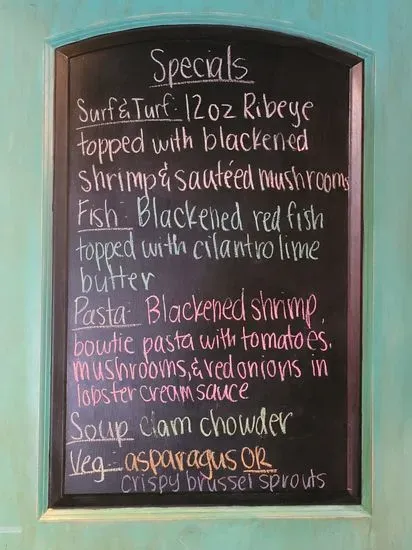 Specials
Surf & Turf: 12oz Ribeye
topped with blackened
shrimp & sautéed mushrooms
Fish: Blackened red fish
topped with cilantro lime
butter
Pasta: Blackened shrimp,
bowtie pasta with tomatoes,
mushrooms, & red onions in
lobster cream sauce
Soup clam chowder
Veg: asparagus OR
crispy brussel sprouts